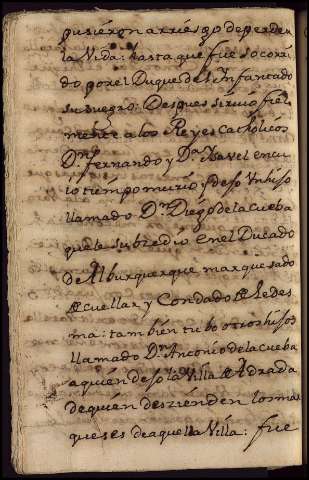 pusieron a rriesgo de perder
la Vida: hasta que fue socorri
do por el Duque del Infantado
su suegro: Despues sirvio fiel
mente a los Reyes Catholicos
Dn. fernando y Da. Isavel en cu
io tiempo murio y dexo Un hijo
llamado Dn. Diego de la Cueba
que le subzedio en el Ducado
de Alburquerque, marquesado
de cuellar y Condado de Ledes
ma: tambien tubo otro hijo
llamado Dn. Antonio de la Cueba
a quien dexo la Villa de Adrada
de quien deszienden los mar
queses de aquella Villa: fue